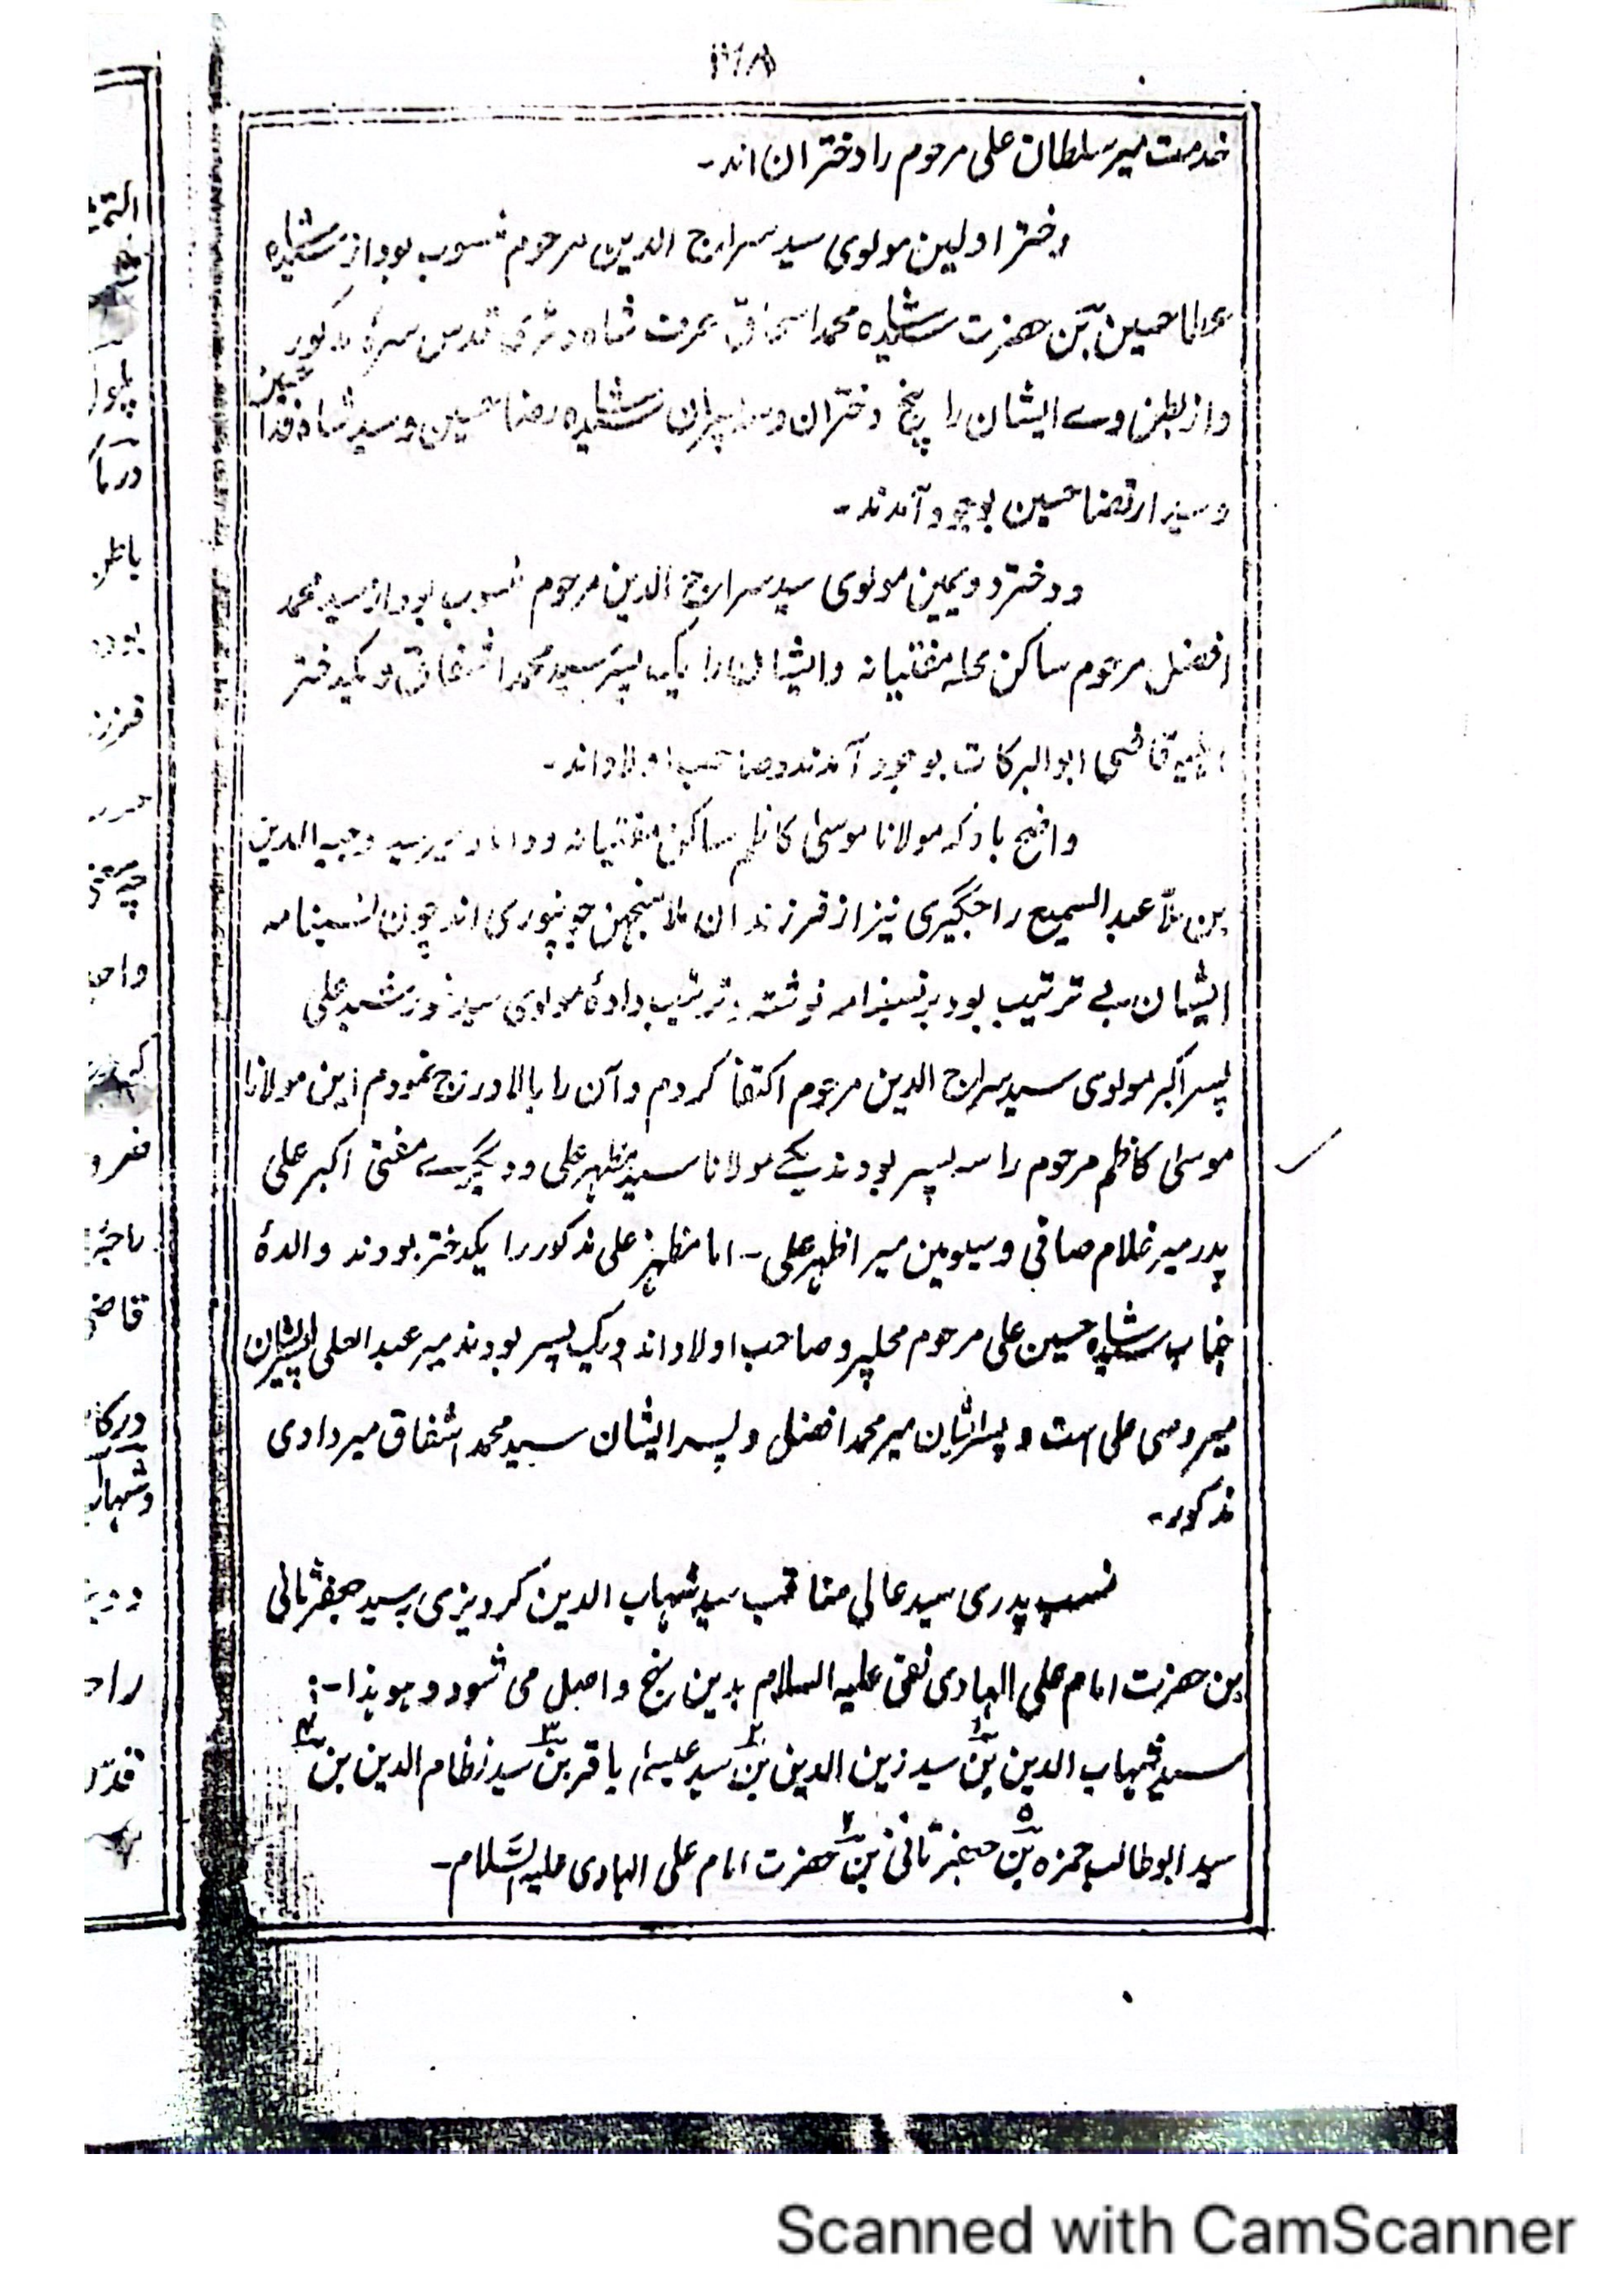 خدمت میر سلطان علی مرحوم را دختران اند۔
دختر اولین مولوی سید سراج الدین مرحوم منسوب بود از سید شاه
عطا حسین بن حضرت سید شاه محمد اسحاق عرف شاه قدس سرهٔ مذکور
و از بطن وے ایشان را پنج دختران و سه پسران سید شاه رضا حسین و سید شاه فدا حسین
و سید ارتضا حسین بوجود آمدند۔
و دختر دویمین مولوی سید سراج الدین مرحوم منسوب بود از سید محمد
افضل مرحوم ساکن محله مفتیانه و ایشان را یک پسر سید محمد اشفاق و یکدختر
قاضی ابوالبرکات بوجود آمدند و صاحب اولاد اند۔
واضح باد که مولانا موسیٰ کاظم ساکن مفتیانه و داماد میر سید وجیه الدین
بن ملّا عبد السمیع راجگیری نیز از فرزندان ملا منجهن جونپوری اند چون نسبنامه
ایشان بے ترتیب بود بر نسبنامه نوشته و ترتیب دادهٔ مولوی سید خورشید علی
پسر اکبر مولوی سید سراج الدین مرحوم اکتفا کردم و آن را بالا درج نمودم این مولانا
موسیٰ کاظم مرحوم را سه پسر بودند یکے مولانا سید مظهر علی و دیگرے مفتی اکبر علی
پدر میر غلام صافی و سیومین میر اظهر علی۔ اما مظهر علی مذکور را یکدختر بودند والدهٔ
جناب سید شاه حسین علی مرحوم محلپر و صاحب اولاد اند و یک پسر بودند میر عبد العلی پسر ایشان
میر وصی علی است و پسر ایشان میر محمد افضل و پسر ایشان سید محمد اشفاق میر دادی
مذکور۔
نسب پدری سید عالی مناقب سید شهاب الدین کردیزی به سید جعفر ثانی
بن حضرت امام علی الهادی نقی علیه السلام بدین نهج واصل می شود و هو هذا:۔
سید شهاب الدین بن۱ سید زین الدین بن۲ سید باقر بن۳ سید نظام الدین بن۴
سید ابوطالب حمزه بن۵ جعفر ثانی بن۶ حضرت امام علی الهادی علیه السّلام۔
Scanned with CamScanner